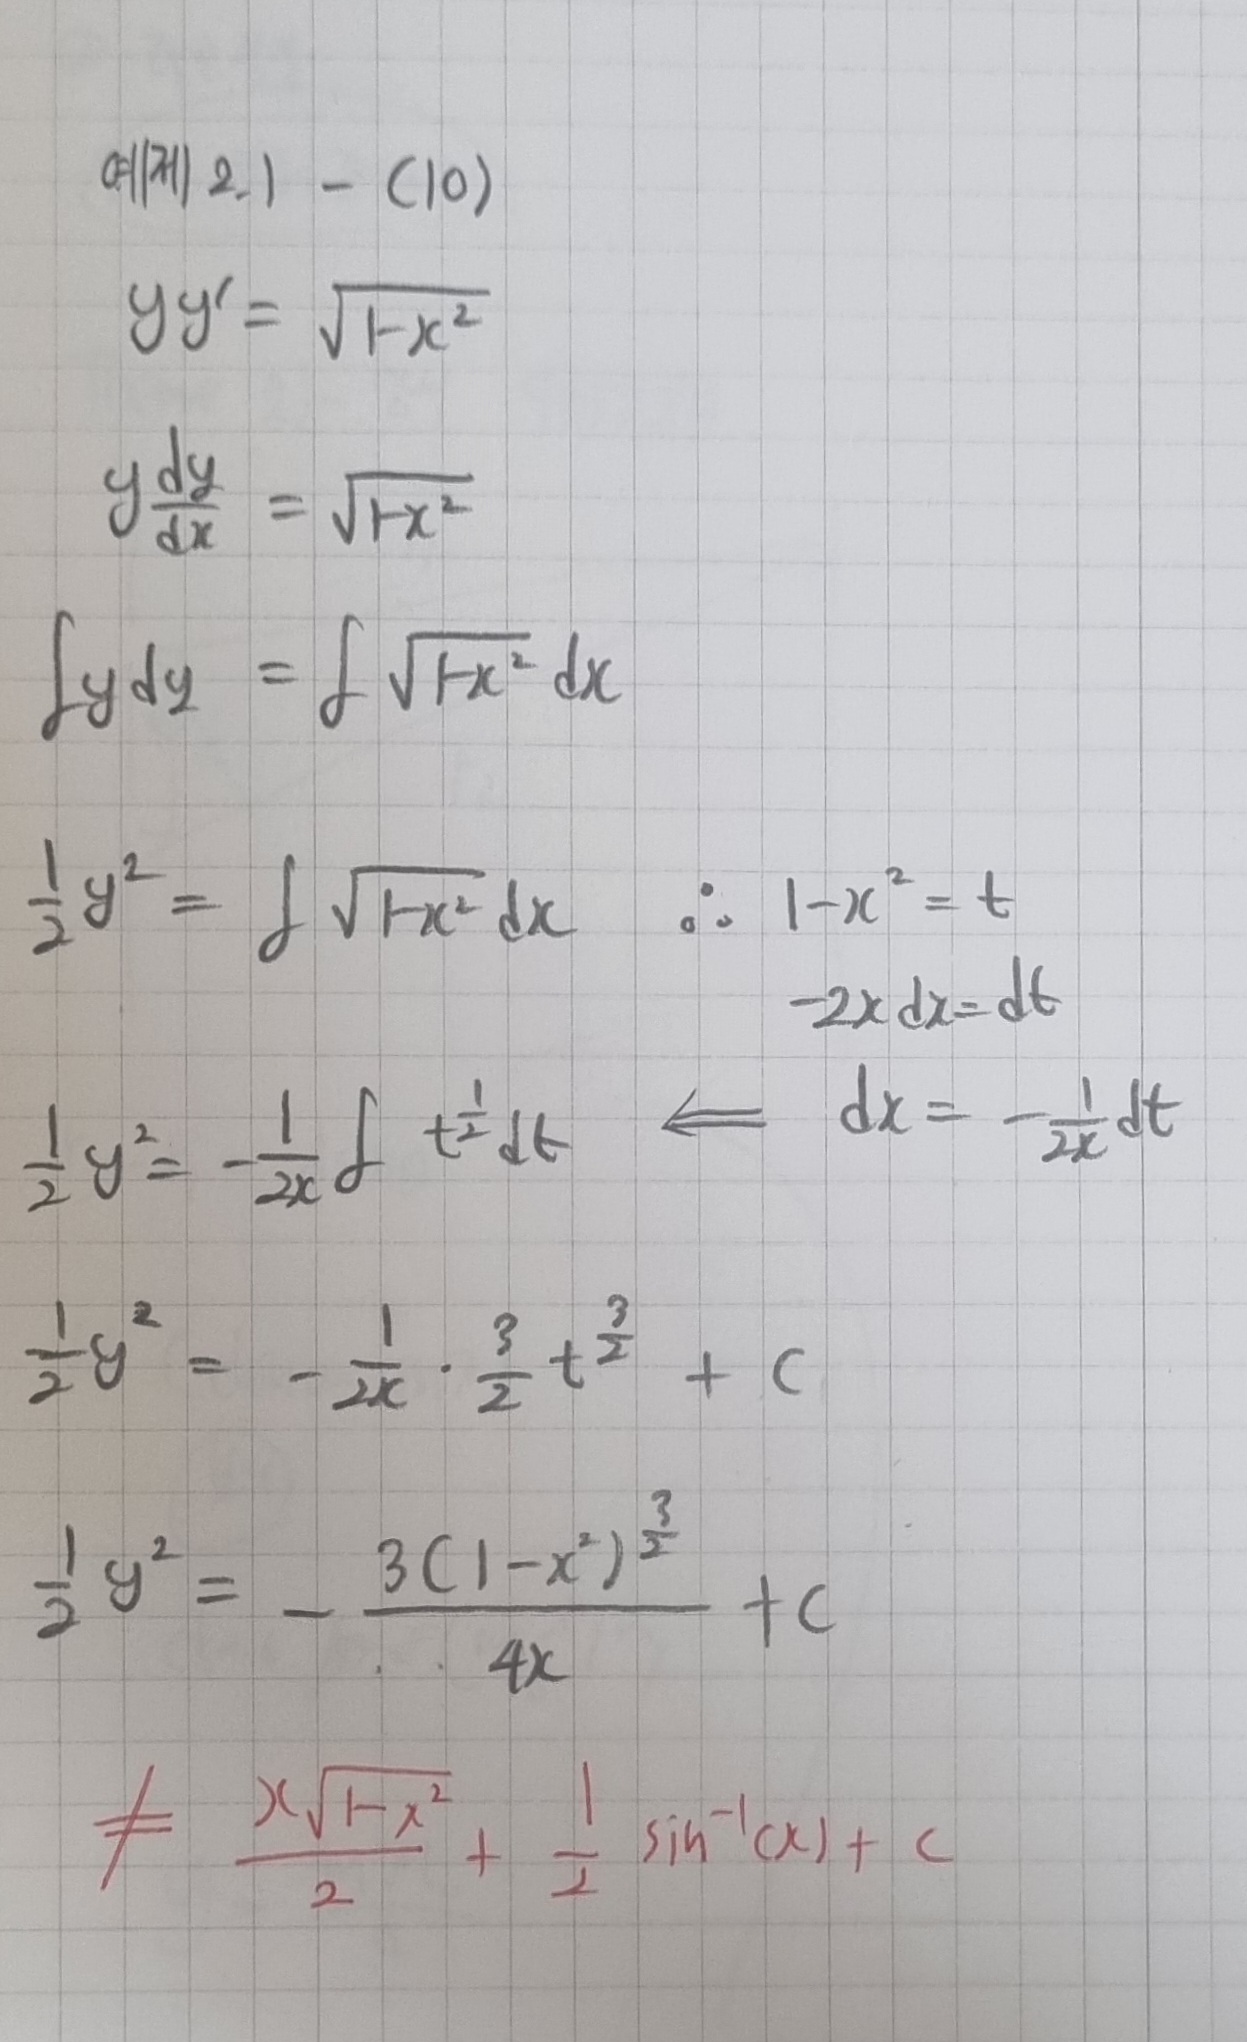 예제 2.1 - (10)
yy' = √(1-x²)
y dy/dx = √(1-x²)
∫y dy = ∫ √(1-x²) dx
1/2 y² = ∫ √(1-x²) dx ∴ 1-x² = t
-2x dx = dt
1/2 y² = -1/2x ∫ t^(1/2) dt ⇐ dx = -1/2x dt
1/2 y² = -1/2x · 3/2 t^(3/2) + C
1/2 y² = - 3(1-x²)^(3/2) / 4x + C
≠ x√(1-x²) / 2 + 1/2 sin⁻¹(x) + C